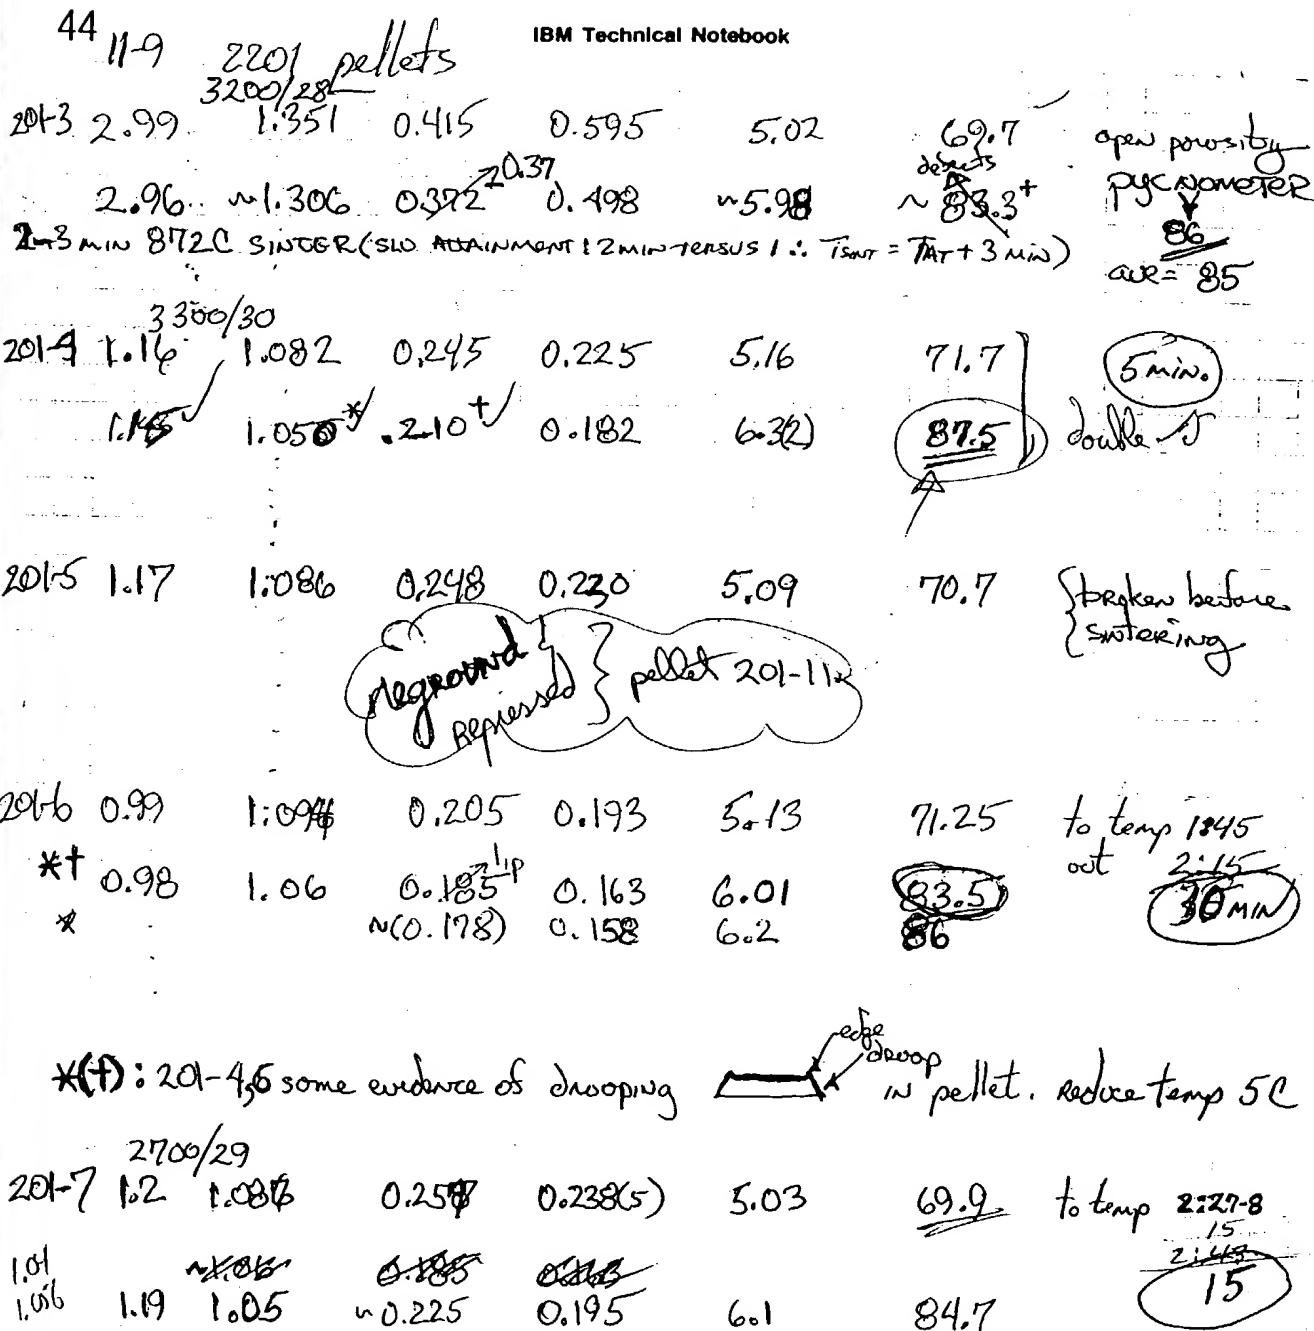 44 IBM Technical Notebook
11-9 2201 pellets
3200/28
201-3 2.99 1.351 0.415 0.595 5.02 69.7 open porosity
2.96 ~1.306 0.372 ~0.37 0.498 ~5.98 ~83.3+ defects PYCNOMETER
86
2-3 MIN 872C SINTER (SLO ATTAINMENT : 2 MIN VERSUS 1 ∴ TSINT = TAT + 3 MIN) ave = 85
3300/30
201-4 1.16 1.082 0.245 0.225 5.16 71.7 5 MIN.
1.145 ✓ 1.050*✓ .210+✓ 0.182 6.3(2) 87.5 double
201-5 1.17 1.086 0.248 0.230 5.09 70.7 broken before
sintering
reground
repressed } pellet 201-11
201-6 0.99 1.094 0.205 0.193 5.13 71.25 to temp 1:45
out 2:15
*† 0.98 1.06 0.185 lip 0.163 6.01 83.5 30 MIN
* ~(0.178) 0.158 6.2 86
edge
droop
*(†): 201-4,6 some evidence of drooping in pellet. reduce temp 5C
2700/29
201-7 1.2 1.087 0.257 0.238(5) 5.03 69.9 to temp 2:27-8
15
1.01 ~1.06 0.185 0.163 2:43
1.056 1.19 1.05 ~0.225 0.195 6.1 84.7 15